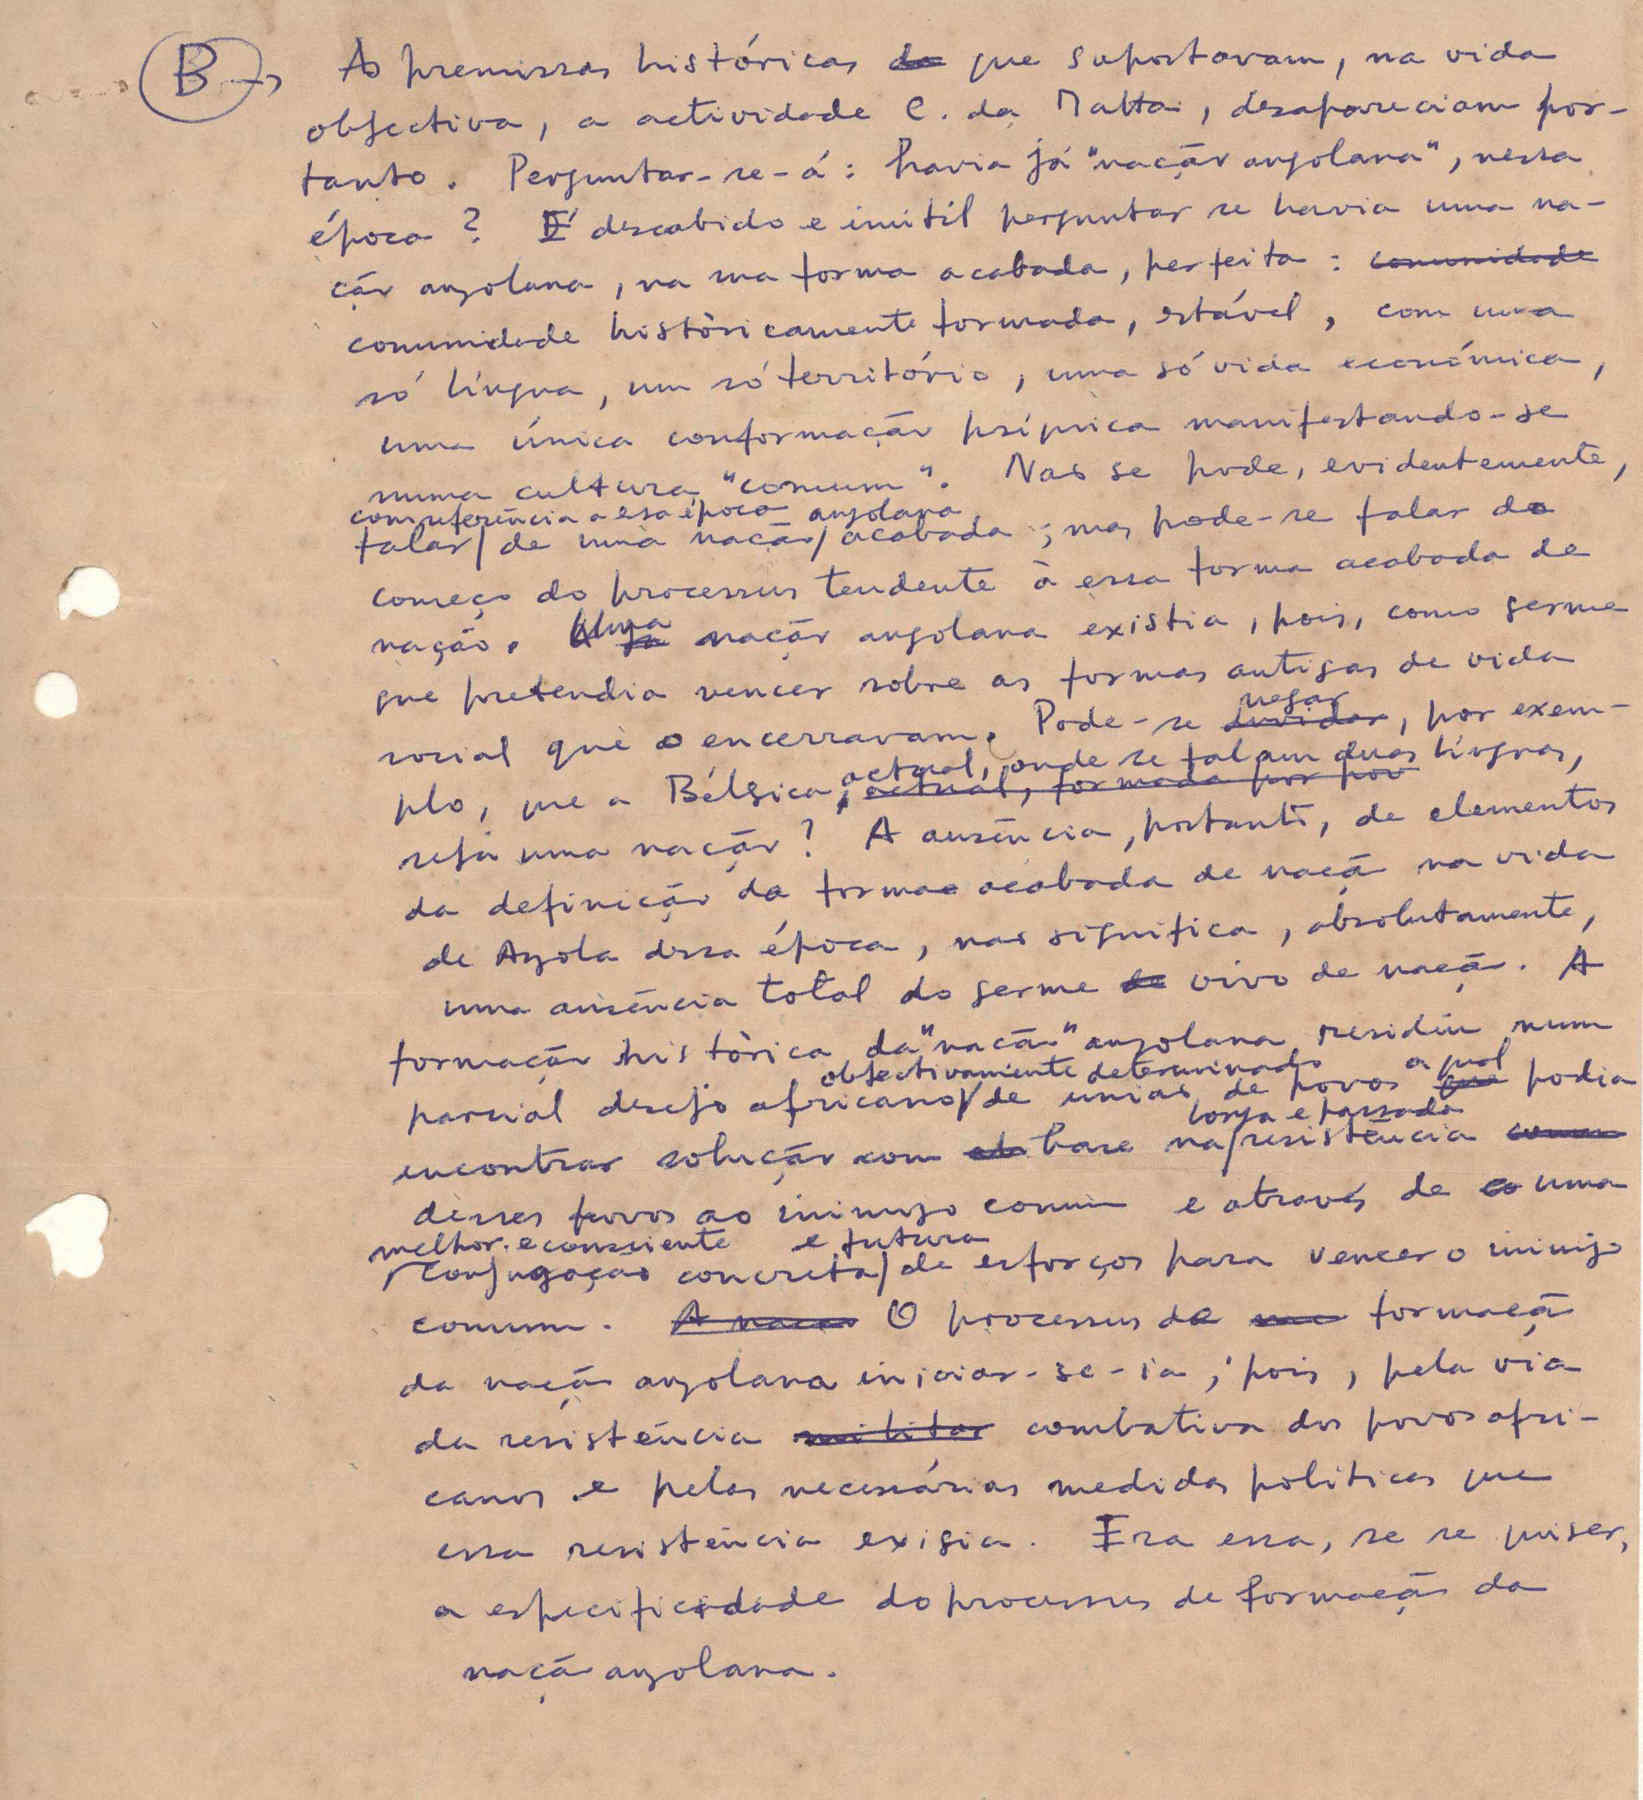 B → As premissas históricas da que suportavam, na vida
objectiva, a actividade C. da Matta, desapareciam por-
tanto. Perguntar-se-á: havia já "nação angolana", nessa
época? É descabido e inútil perguntar se havia uma na-
ção angolana, na sua forma acabada, perfeita: comunidade
comunidade històricamente formada, estável, com uma
só língua, um só território, uma só vida económica,
uma única conformação psíquica manifestando-se
numa cultura "comum". Não se pode, evidentemente,
com referência a essa época angolana
falar/ de uma nação/ acabada; mas pode-se falar do
começo do processus tendente à essa forma acabada de
nação. Uma nação angolana existia, pois, como germe
que pretendia vencer sobre as formas antigas de vida
negar
social que o encerravam. Pode-se duvidar, por exem-
actual, onde se falam duas línguas,
plo, que a Bélgica, actual, formada por pov
seja uma nação? A ausência, portanto, de elementos
da definição da forma acabada de nação na vida
de Angola dessa época, não significa, absolutamente,
uma ausência total do germe de vivo de nação. A
formação històrica da "nação" angolana residiu num
objectivamente determinado a qual
parcial desejo africano/ de união de povos que podia
longa e passada
encontrar solução com base na/ resistência comum
desses povos ao inimigo comum e através de co uma
melhor e consciente e futura
/conjugação concreta/ de esforços para vencer o inimigo
comum. A nação O processus de uma formação
da nação angolana iniciar-se-ia, pois, pela via
da resistência militar combativa dos povos afri-
canos e pelas necessárias medidas políticas que
essa resistência exigia. Era essa, se se quiser,
a especificidade do processus de formação da
nação angolana.